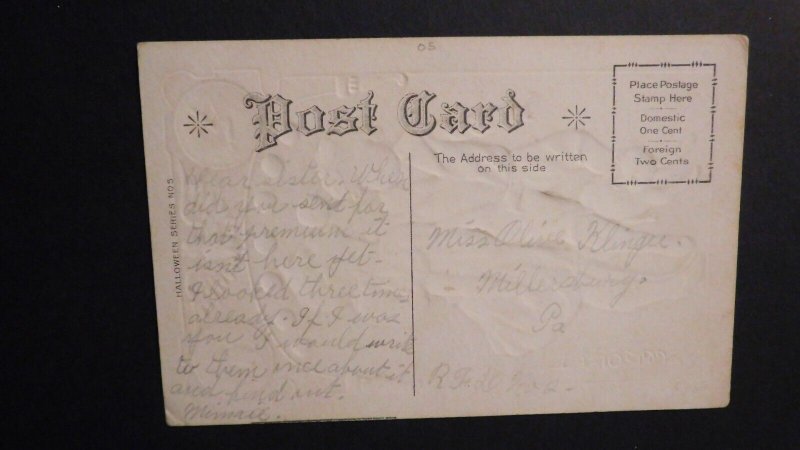 05
Post Card
Place Postage
Stamp Here
Domestic
One Cent
Foreign
Two Cents
The Address to be written
on this side
HALLOWEEN SERIES NO 5
Dear Sister, When
did you sent for
that premium it
isnt here yet-
I looked three times
already. If I was
you I would write
to them once about it
and find out.
Minnie.
Miss Olive
Millersburg.
Pa
R.F.D.